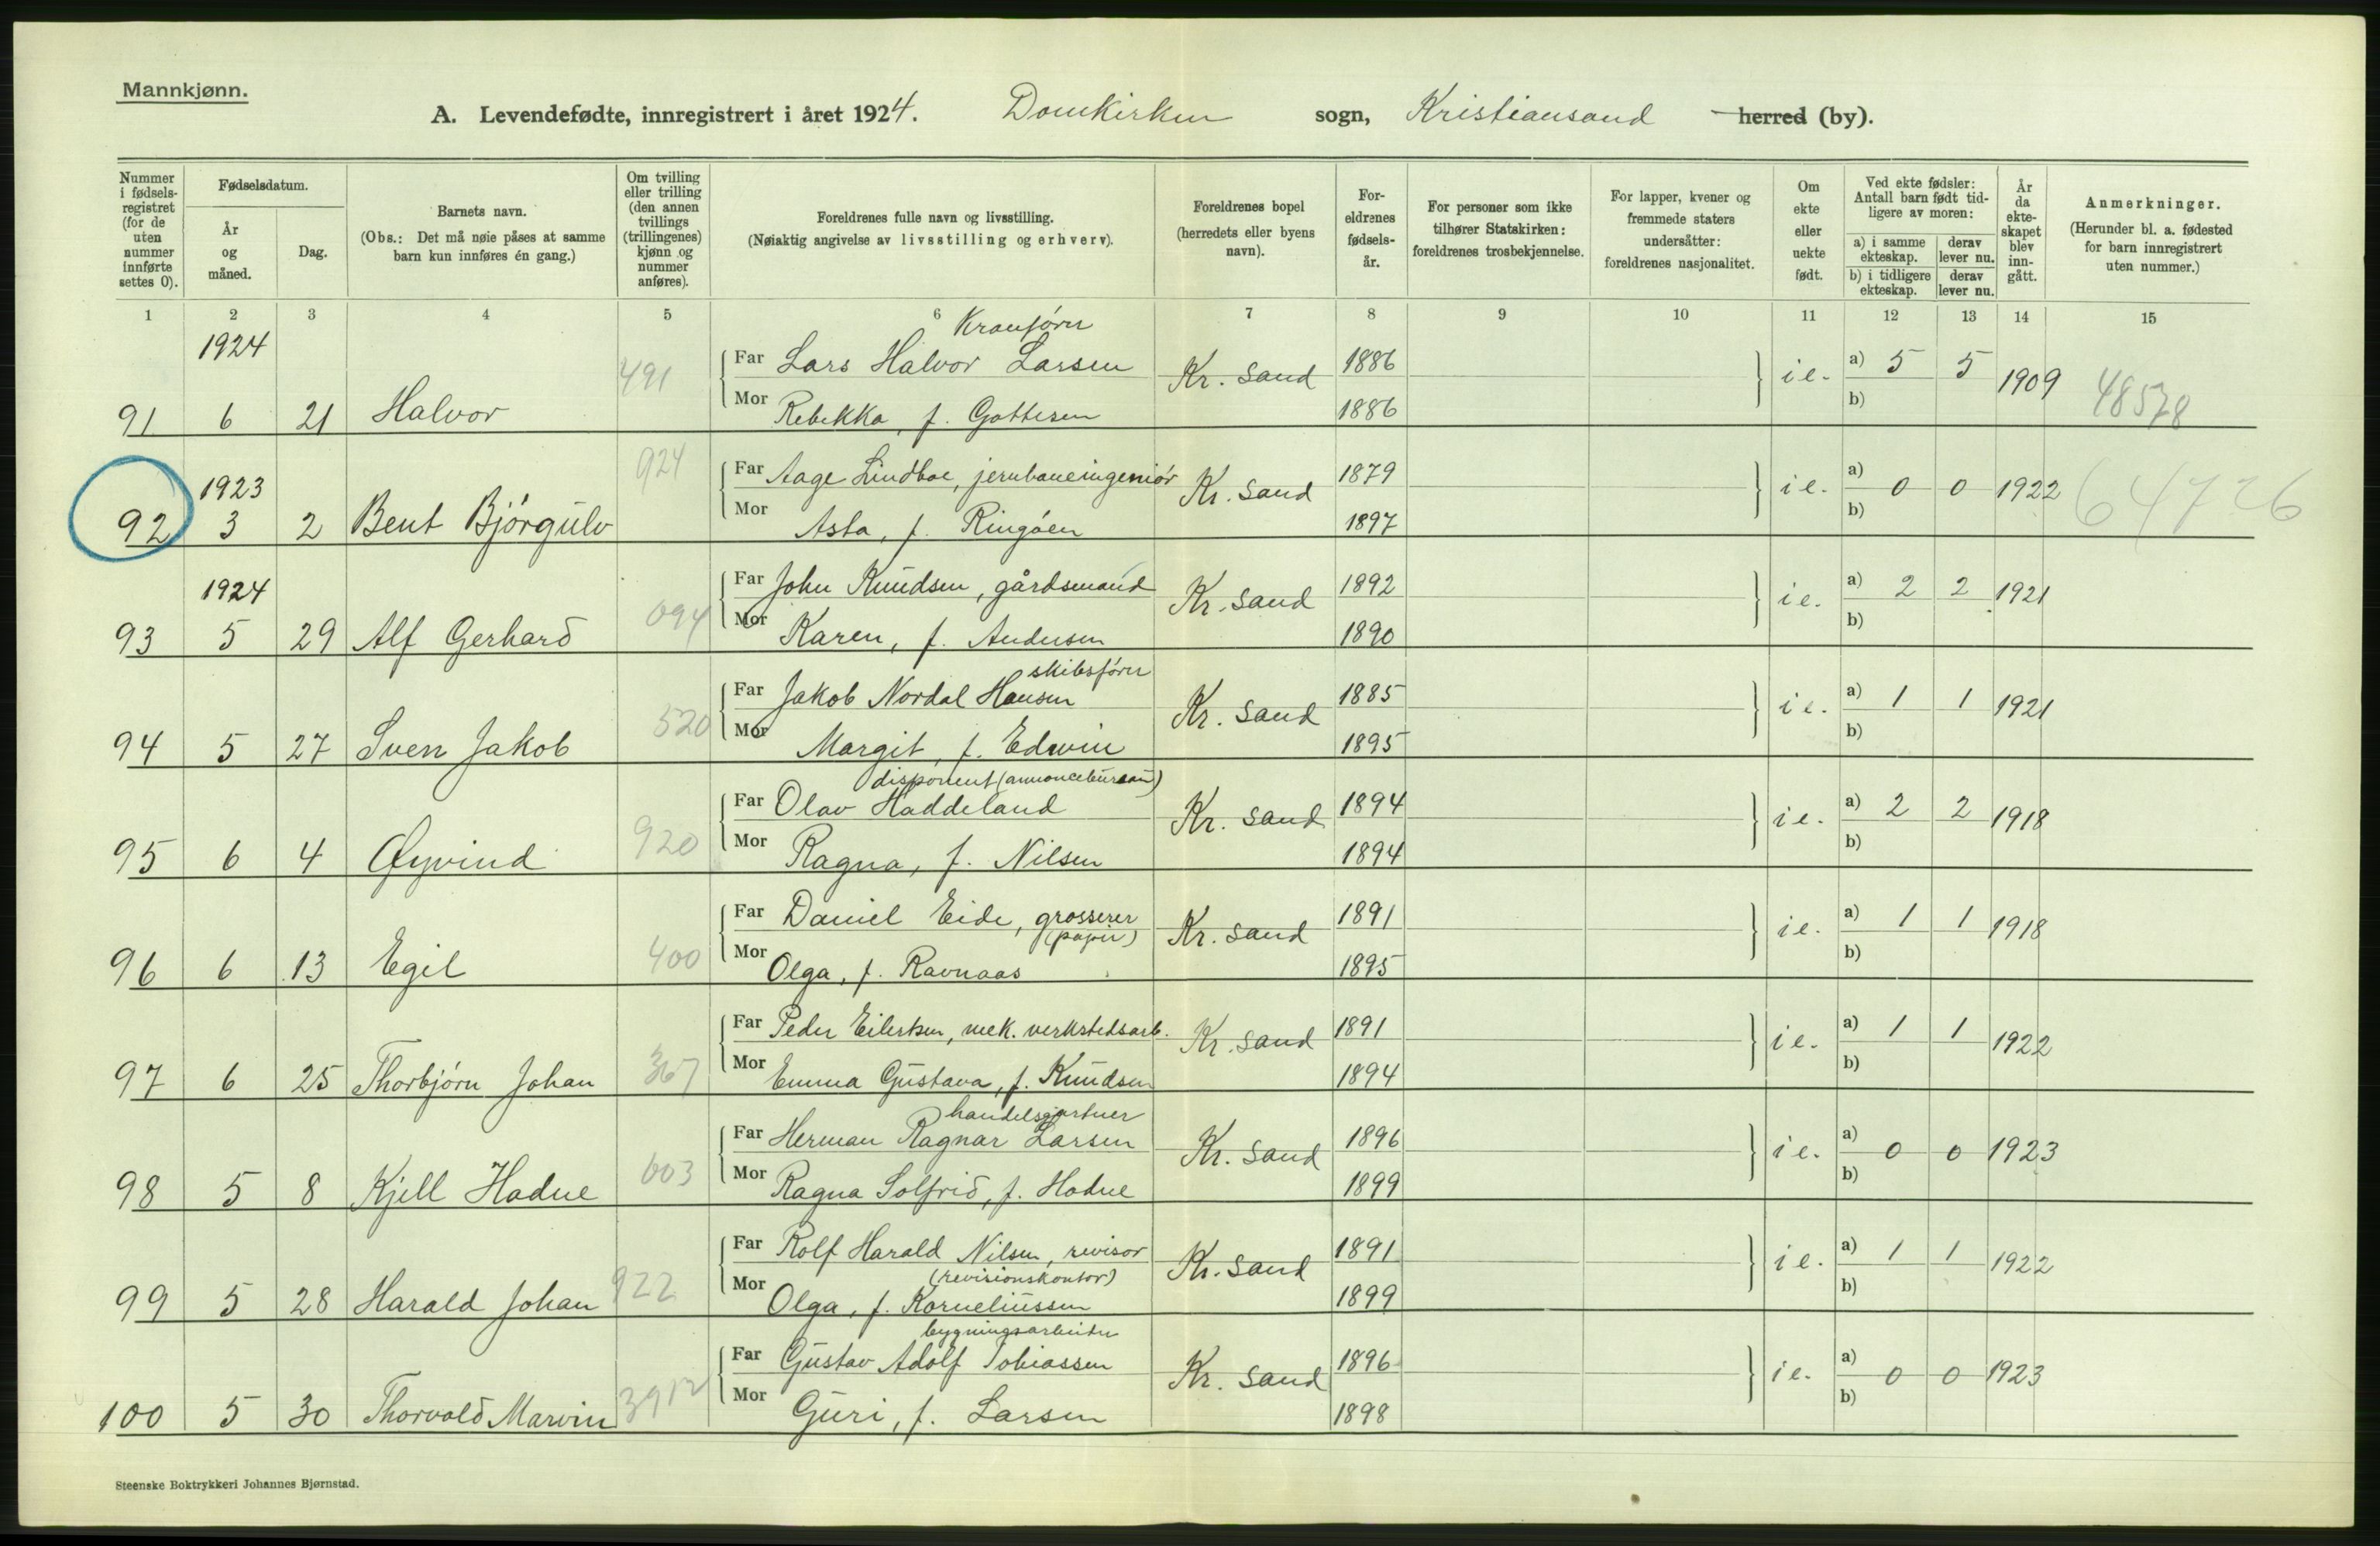 Mannkjønn.
A. Levendefødte, innregistrert i året 1924. Domkirken sogn, Kristiansand herred (by).
Nummer i fødselsregistret (for de uten nummer innførte settes 0).
Fødselsdatum.
År og måned.
Dag.
Barnets navn.
(Obs.: Det må nøie påses at samme barn kun innføres én gang.)
Om tvilling eller trilling (den annen tvillings (trillingenes) kjønn og nummer anføres).
Foreldrenes fulle navn og livsstilling.
(Nøiaktig angivelse av livsstilling og erhverv).
Foreldrenes bopel (herredets eller byens navn).
Foreldrenes fødselsår.
For personer som ikke tilhører Statskirken: foreldrenes trosbekjennelse.
For lapper, kvener og fremmede staters undersåtter: foreldrenes nasjonalitet.
Om ekte eller uekte født.
Ved ekte fødsler: Antall barn født tidligere av moren:
a) i samme ekteskap. derav lever nu.
b) i tidligere ekteskap. derav lever nu.
År da ekteskapet blev inngått.
Anmerkninger.
(Herunder bl. a. fødested for barn innregistrert uten nummer.)
1 2 3 4 5 6 7 8 9 10 11 12 13 14 15
1924 Kranfører
491 Far Lars Halvor Larsen Kr. sand 1886 i e. a) 5 5 1909 48578
91 6 21 Halvor Mor Rebekka, f. Gottesen 1886 b)
1923 924 Far Aage Lindboe, jernbaneingeniør Kr. sand 1879 i e. a) 0 0 1922 64726
92 3 2 Bent Bjørgulv Mor Asta, f. Ringøen 1897 b)
1924 Far John Knudsen, gårdsmand Kr. sand 1892 i e. a) 2 2 1921
93 5 29 Alf Gerhard 094 Mor Karen, f. Andersen 1890 b)
skibsfører
Far Jakob Nordal Hansen Kr. sand 1885 i e. a) 1 1 1921
94 5 27 Sven Jakob 520 Mor Margit, f. Edwin 1895 b)
disponent (annoncebureau)
Far Olav Haddeland Kr. sand 1894 i e. a) 2 2 1918
95 6 4 Øyvind 920 Mor Ragna, f. Nilsen 1894 b)
Far Daniel Eide, grosserer Kr. sand 1891 i e. a) 1 1 1918
(papir)
96 6 13 Egil 400 Mor Olga, f. Ravnaas 1895 b)
Far Peder Eilertsen, mek. verkstedsarb. Kr. sand 1891 i e. a) 1 1 1922
97 6 25 Thorbjørn Johan 367 Mor Emma Gustava, f. Knudsen 1894 b)
handelsgartner
Far Herman Ragnar Larsen Kr. sand 1896 i e. a) 0 0 1923
98 5 8 Kjell Hodne 603 Mor Ragna Solfrid, f. Hodne 1899 b)
Far Rolf Harald Nilsen, revisor Kr. sand 1891 i e. a) 1 1 1922
(revisionskontor)
99 5 28 Harald Johan 922 Mor Olga, f. Korneliussen 1899 b)
bygningsarbeider
Far Gustav Adolf Tobiassen Kr. sand 1896 i e. a) 0 0 1923
100 5 30 Thorvald Marvin Mor Guri, f. Larsen 1898 b)
Steenske Boktrykkeri Johannes Bjørnstad.